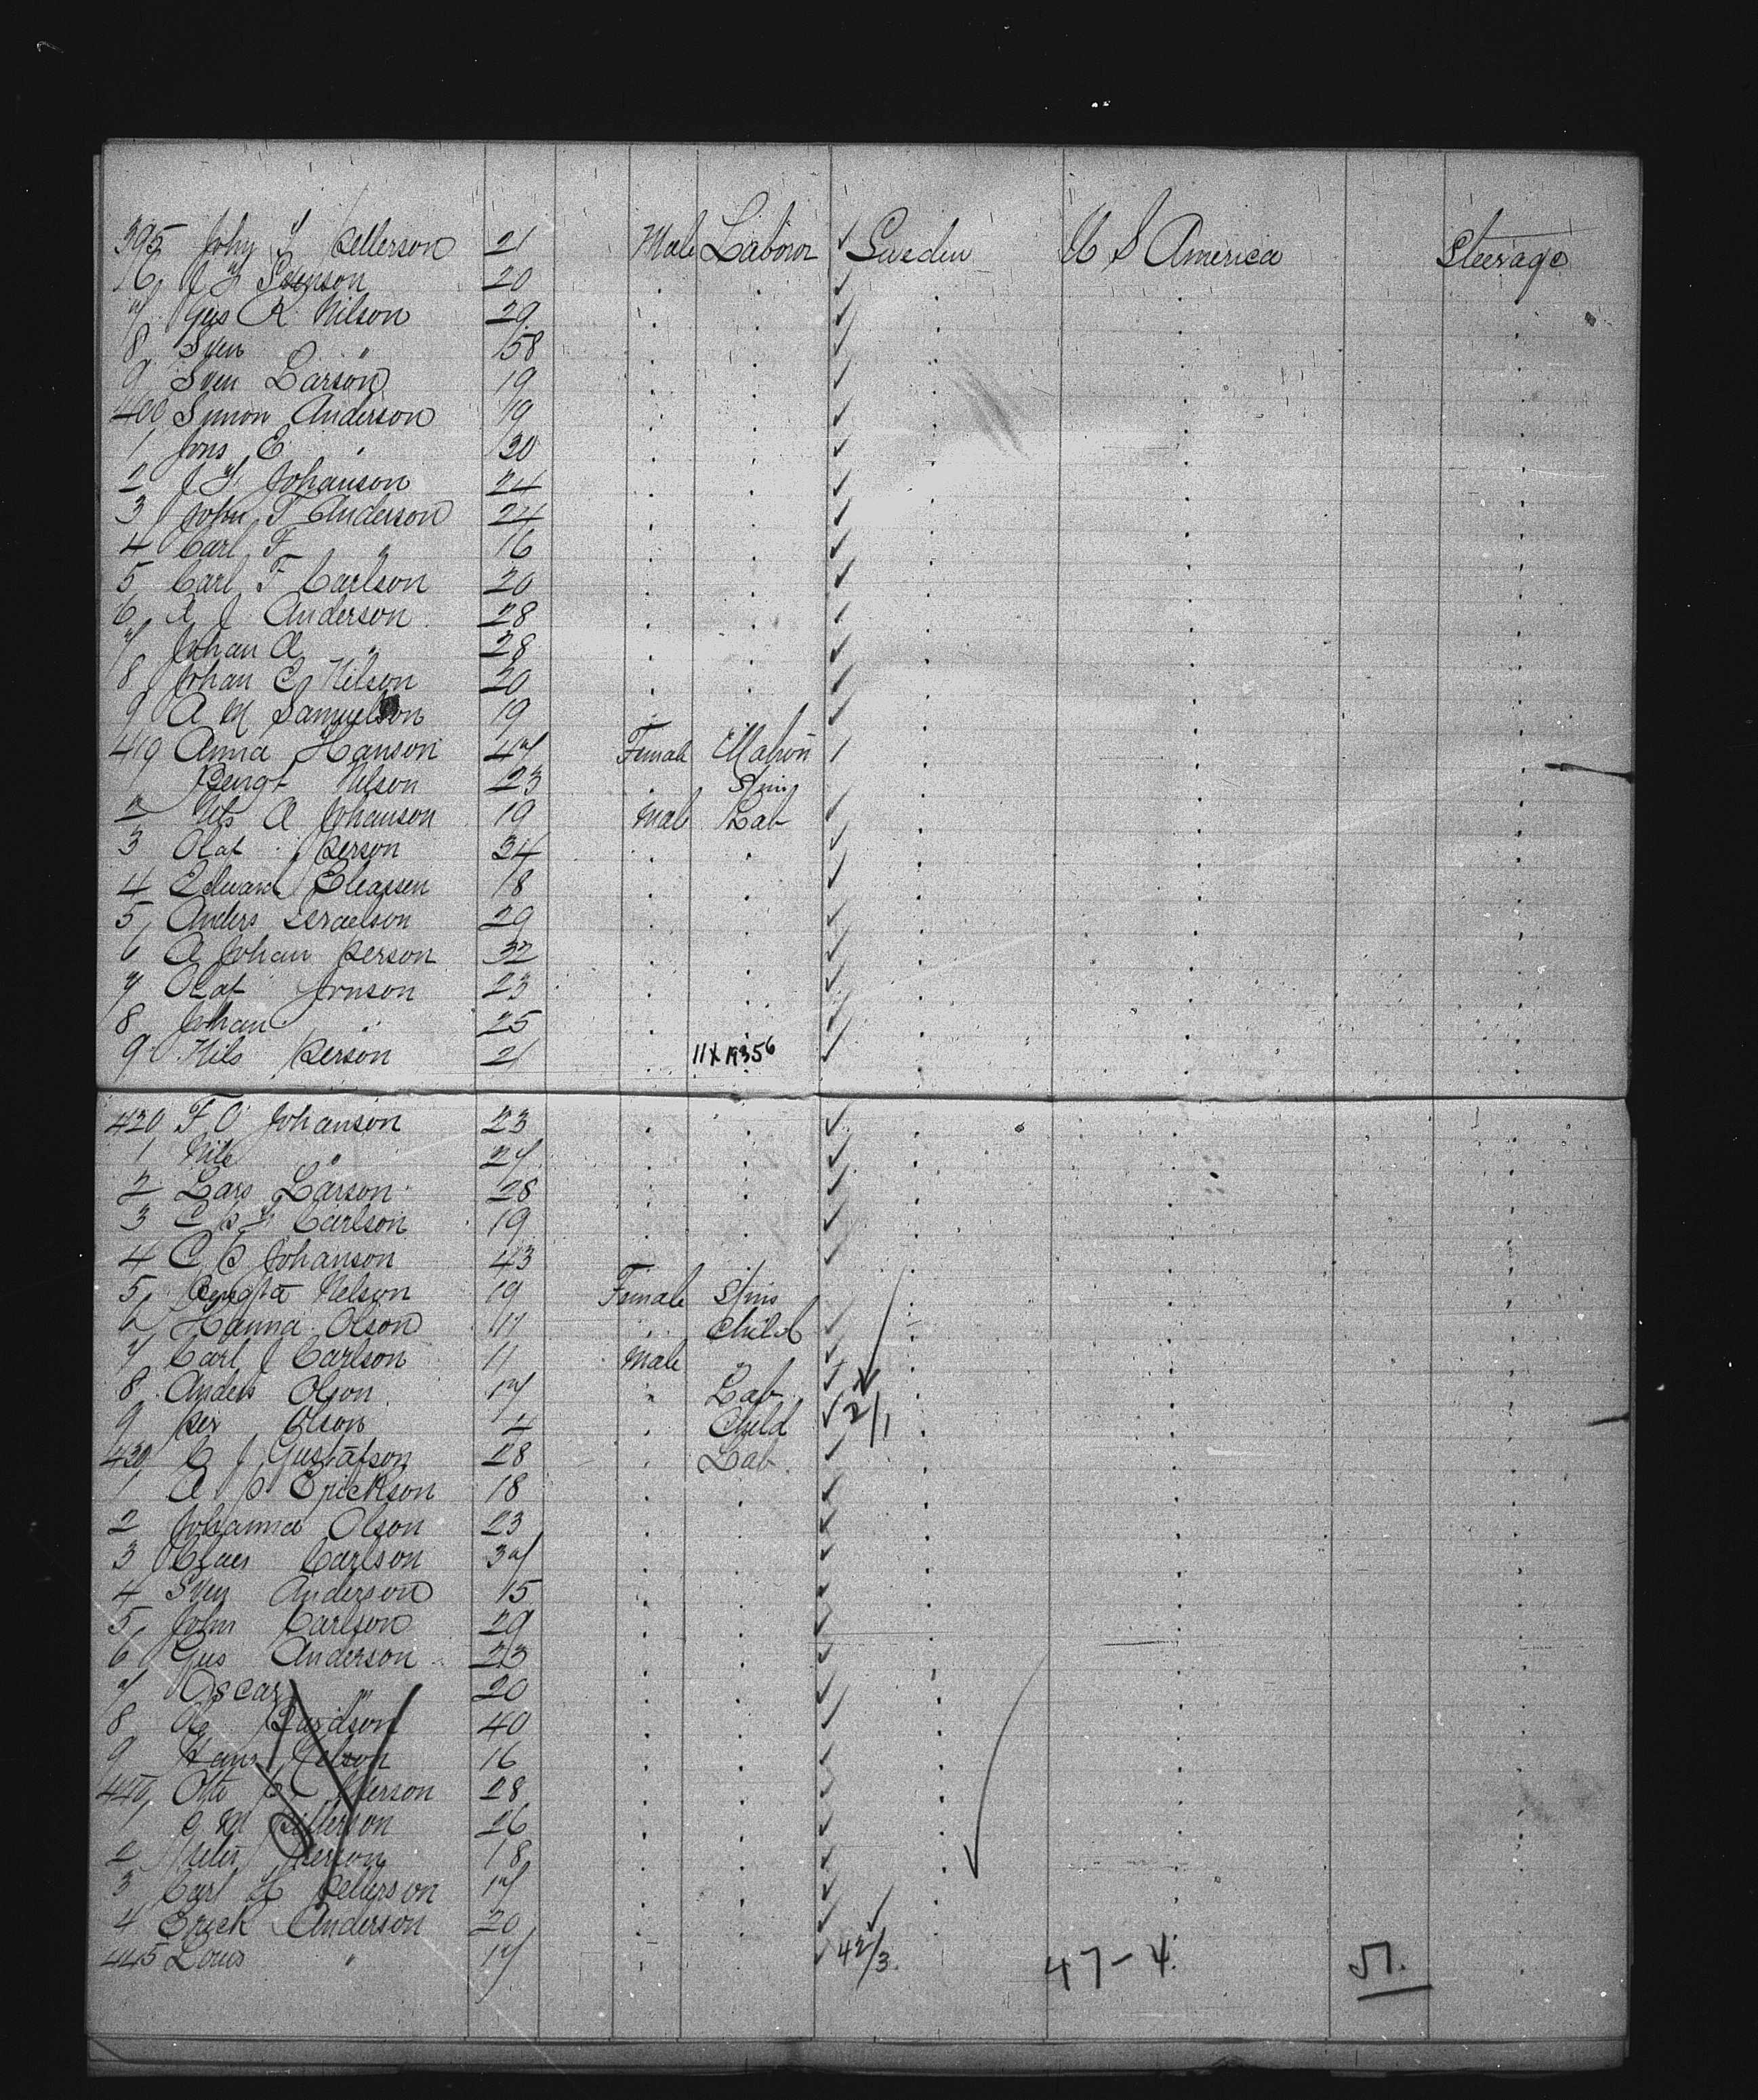 395 John F Petterson 21 Male Laborer ✓ Sweden U S America Steerage
96 J F Swenson 20 . . ✓
7 Gus R Nilson 29 . . ✓ . . .
8 Sven " 58 . . ✓ . . .
9 Sven Larson 19 . . ✓ . . .
400 Simon Anderson 19 . . ✓ . . .
1 Jons E " 30 . . ✓ . . .
2 J F Johanson 24 . . ✓ . . .
3 John F Anderson 24 . . ✓ . . .
4 Carl F " 16 . . ✓ . . .
5 Carl F Carlson 20 . . ✓ . . .
6 A J Anderson 28 . . ✓ . . .
7 Johan A " 28 . . ✓ . . .
8 Johan E Nilson 20 . . ✓ . . .
9 A M Samuelson 19 . ✓ . . .
410 Anna Hanson 47 Female Matron / . . .
Bengt Nilson 23 . Spins . . .
2 Nils A Johanson 19 Male Lab ✓ . . .
3 Olaf Person 34 . . ✓ . . .
4 Edward Eleassen 18 . . ✓ . . .
5 Anders Israelson 29 . . ✓ . . .
6 A Johan Person 32 . . ✓ . . .
7 Olaf Jonson 23 . . ✓ . . .
8 Johan " 25 . . ✓ . . .
9 Nils Person 21 . 11X19356 ✓ . . .
420 F O Johanson 23 . . ✓ . . .
1 Nils " 27 . . ✓ . . .
2 Lars Larson 28 . . ✓ . . .
3 C P F Carlson 19 . . ✓ . . .
4 C P Johanson 43 . . ✓ . . .
5 Bengta Nelson 19 Female Spins ✓ . . .
6 Hanna Olson 11 " Child ✓ . . .
7 Carl J Carlson 11 Male ✓ . . .
8 Anders Olson 17 " Lab ✓ . . .
9 Per Olson 4 . Child ✓ 2/1 . . .
430 C J Gustafson 28 . Lab ✓ . . .
1 A P Erickson 18 . . ✓ . . .
2 Johanna Olson 23 . . ✓ . . .
3 Claes Carlson 37 . . ✓ . . .
4 Sven Anderson 15 . . ✓ . . .
5 John Carlson 29 . . ✓ . . .
6 Gus Anderson 23 . . ✓ . . .
7 Oscar " 20 . . ✓ . . .
8 Davidson 40 . . ✓ . . .
9 Hans Nelson 16 . . ✓ . . .
440 Otto P Petterson 28 . . ✓ . . .
1 C M Petterson 26 . . ✓ . . .
2 Person 18 . . ✓ . . .
3 Carl H Petterson 17 . . ✓ . . .
4 Erick Anderson 20 . . ✓ ✓ . . .
445 Louis " 17 . . ✓ 42/3. 47-4. 51. .